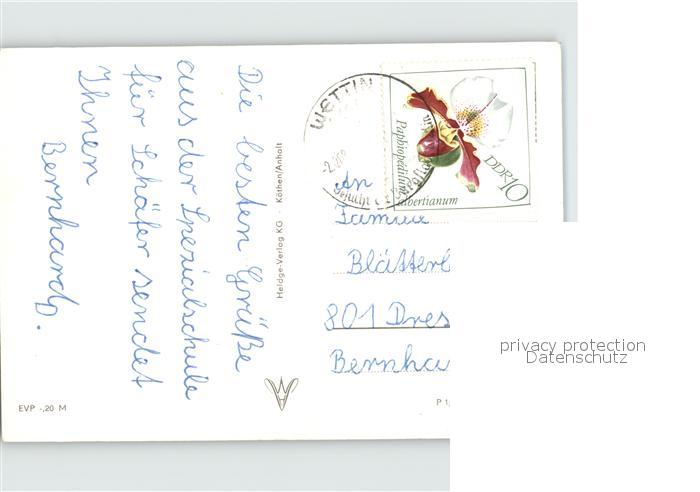 Die besten Grüße
aus der Spezialschule
für Schäfer sendet
Ihnen
Bernhard.
Heldge-Verlag KG · Köthen/Anhalt
EVP -,20 M
WETTIN
Paphiopedilum
albertianum
DDR 10
An
Familie
Blätterl
801 Dres
Bernha
P 1
privacy protection
Datenschutz